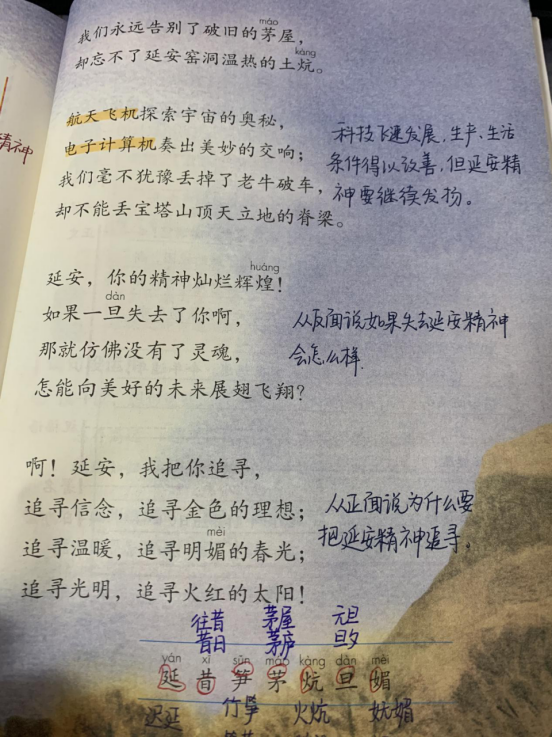 精神
máo
我们永远告别了破旧的茅屋，
kàng
却忘不了延安窑洞温热的土炕。
航天飞机探索宇宙的奥秘，
电子计算机奏出美妙的交响；
我们毫不犹豫丢掉了老牛破车，
却不能丢宝塔山顶天立地的脊梁。
科技飞速发展，生产、生活
条件得以改善，但延安精
神要继续发扬。
huáng
延安，你的精神灿烂辉煌！
dàn
如果一旦失去了你啊，
那就仿佛没有了灵魂，
怎能向美好的未来展翅飞翔？
从反面说如果失去延安精神
会怎么样.
啊！延安，我把你追寻，
追寻信念，追寻金色的理想；
mèi
追寻温暖，追寻明媚的春光；
追寻光明，追寻火红的太阳！
从正面说为什么要
把延安精神追寻。
往昔 茅屋 元旦
昔日 茅庐 旦夕
yán xī sǔn máo kàng dàn mèi
延 昔 笋 茅 炕 旦 媚
迟延 竹笋 火炕 妩媚